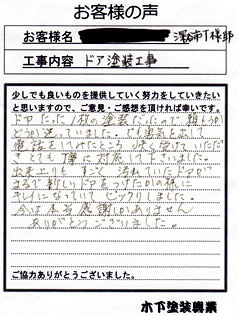 お客様の声
お客様名
深谷市T様邸
工事内容 ドア塗装工事
少しでも良いものを提供していく努力をしていきたい
と思いますので、ご意見・ご感想を頂ければ幸いです。
ドアたった1枚の塗装だったので頼もうか
どうか迷っていました。でも勇気を出して
電話をしてみたところ 快く受けていただ
きとても丁寧に対応して下さいました。
出来上りもすごく汚れていたドアが
まるで新しいドアをつけたかの様に
キレイになっていてビックリしました。
今は本当感謝しかありません
ありがとうございました。
ご協力ありがとうございました。
木下塗装興業